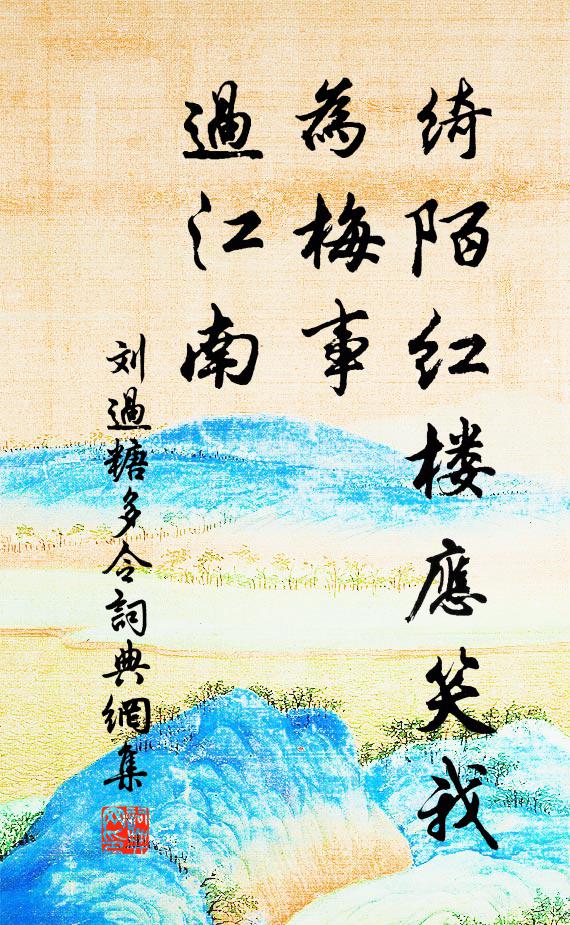 绮陌红楼應笑我
為梅事
過江南
刘過糖多令詞典網集